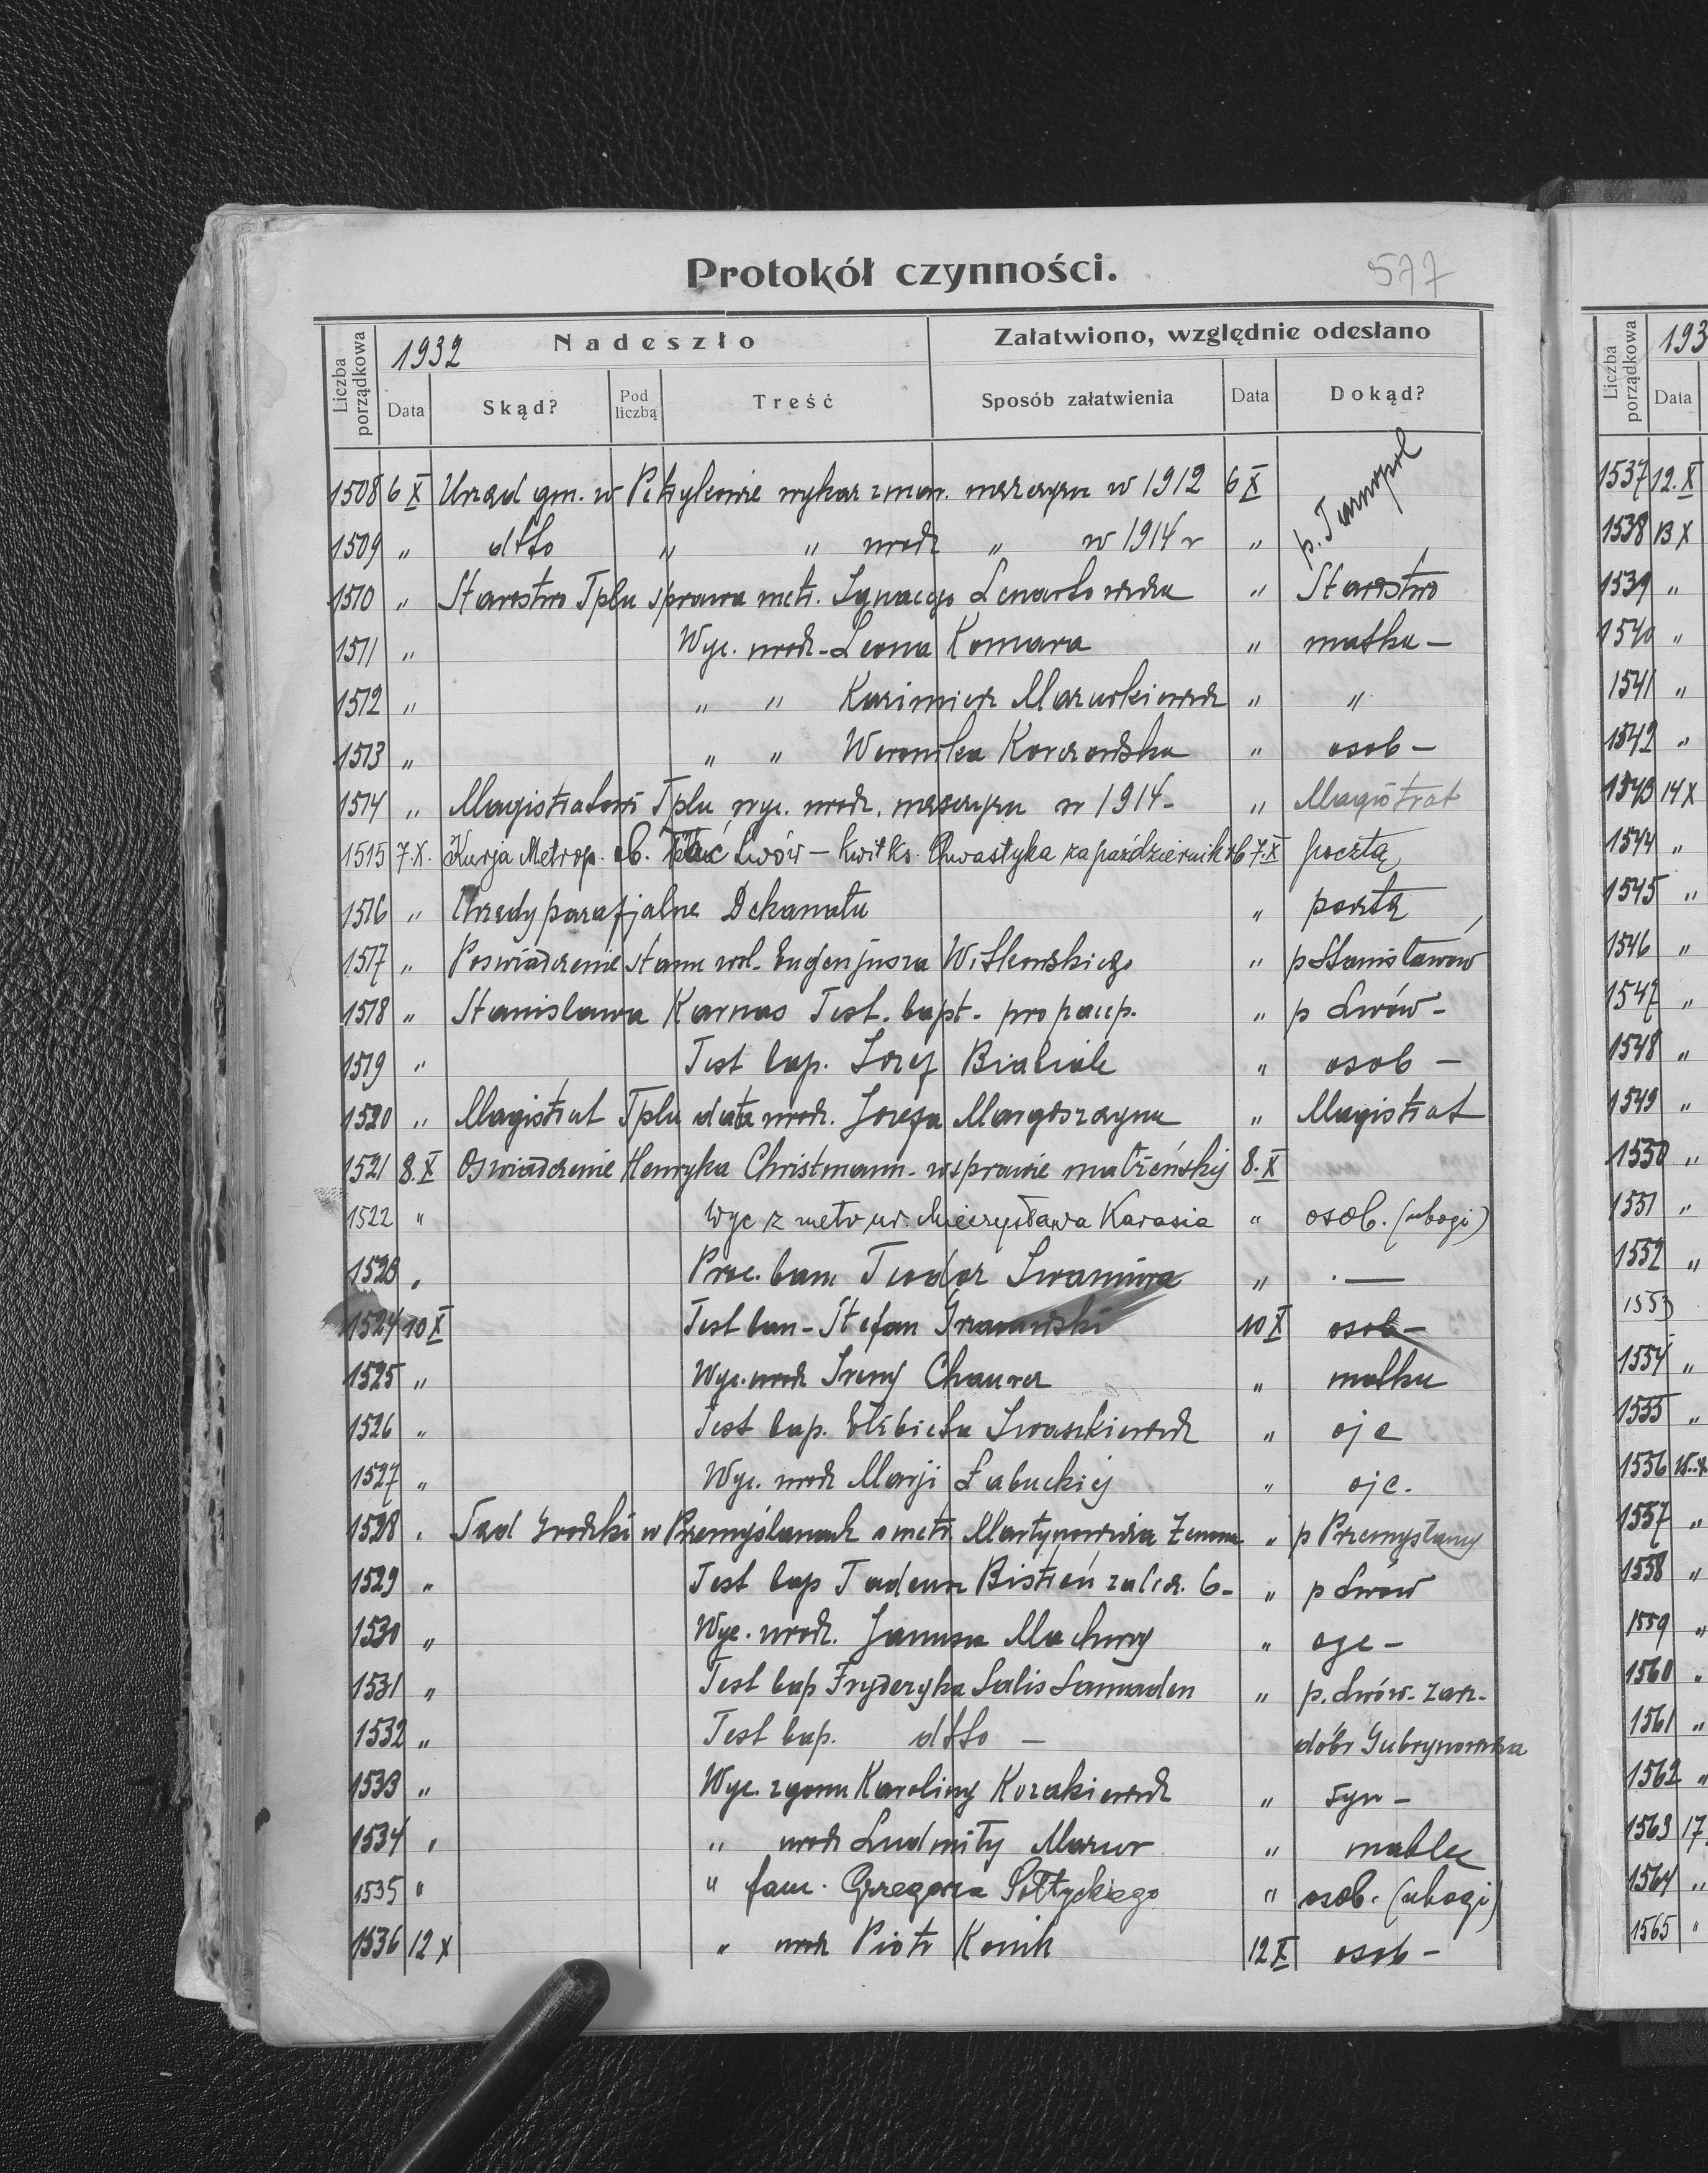 Protokół czynności.
577
Liczba porządkowa
1932 Nadeszło
Załatwiono, względnie odesłano
Data Skąd? Pod liczbą Treść Sposób załatwienia Data Dokąd?
1508 6 X Urząd gm. w wykaz w 1912 6 X p. Tarnopol
1509 " dtto " " urodz " w 1914 r "
1510 " Starostwo Tplu sprawa metr. Ignacego Lenartowicza " Starostwo
1511 " Wyc. urodz - Leona Komara " matka -
1512 " " " Kazimierz Mazurkiewicz " "
1513 " " " Weronika " osob -
1514 " Magistratowi Tplu wyc. urodz. mężczyzn w 1914 - " Magistrat
1515 7.X. Kurja Metrop. ob. łać Lwów - kwit ks. Chwastyka za październik rb 7.X pocztą
1516 " Urzędy parafjalne Dekanatu " pocztą
1517 " Poswiadczenie stanu wol. Eugenjusza Witkowskiego " p Stanisławów
1518 " Stanislawa Karnas Test. bapt. pro paup. " p Lwów -
1519 " Test bap. Józef Bialiak " osob -
1520 " Magistrat Tplu data urodz. Jozefa " Magistrat
1521 8.X Oswiadczenie Henryka Christmann - w sprawie małżeńskij 8.X
1522 " Wyc z metr ur. Mieczysława Karasia " osob. (ubogi)
1523 " Teodor " . —
1524 10 X Test ban - Stefan 10 X osob -
1525 " Wyc. urodz Ireny " matka
1526 " Test bap. Elżbieta Iwaszkiewicz " ojc
1527 " Wyc. urodz Marji Łabuckiej " ojc.
1528 " Sąd Grodzki w Przemyślanach o metr. Martynowicza " p Przemyslany
1529 " Test bap Tadeusz 6 - " p Lwów
1530 " Wyc. urodz. Janusza Machwy " ojc -
1531 " Test bap Fryderyka Salis Samaden " p. Lwów - zarz.
1532 " Test bap. dtto - dóbr Gubrynowicza
1533 " Wyc. zgonu Karoliny Kozakiewicz " syn -
1534 " " urodz Ludmiły Mazur " matka
1535 " " fam. Grzegorza Sołtyckiego " osob. (ubogi)
1536 12 X " urodz Piotr Konik 12 X osob -
Liczba porządkowa
193
Data
1537 12. X
1538 13 X
1539 "
1540 "
1541 "
1542 "
1543 14 X
1544 "
1545 "
1546 "
1547 "
1548 "
1549 "
1550 "
1551 "
1552 "
1553
1554 "
1555 "
1556 15.X
1557 "
1558 "
1559 "
1560 "
1561 "
1562 "
1563 17
1564 "
1565 "